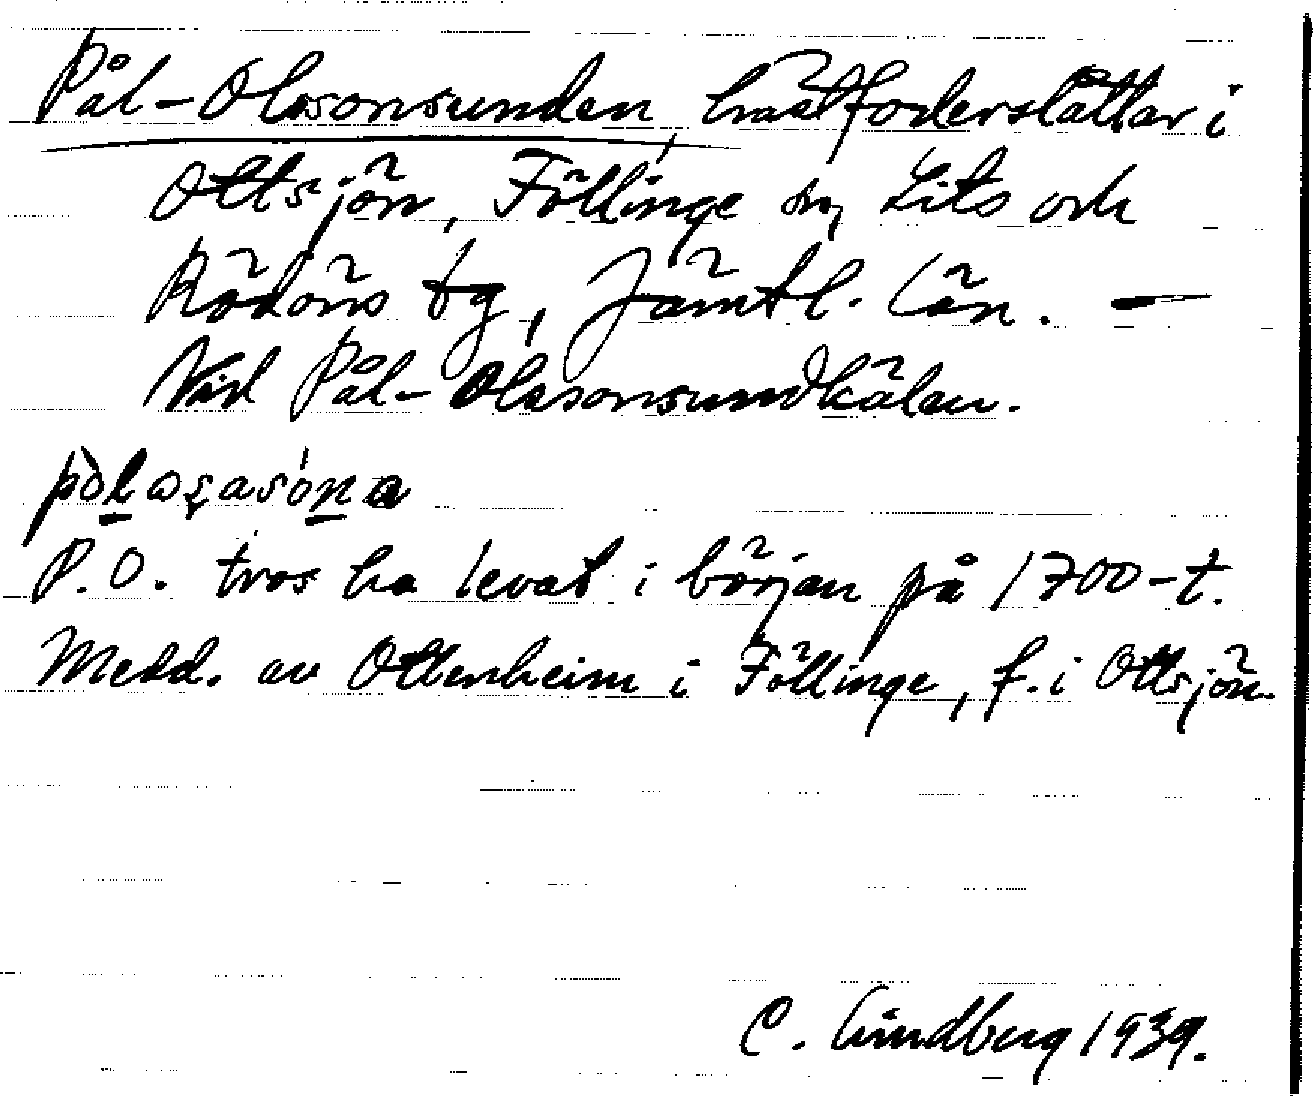 Pål-Olssonsunden, hästfoderslåttar i
Ottsjön, Föllinge sn, Lits och
Rödöns tg, Jämtl. län. —
Vid Pål-Olssonsundkälen.
P.O. tros ha levat i början på 1700-t.
Medd. av Ottenheim i Föllinge, f. i Ottsjön.
C. Lindberg 1939.